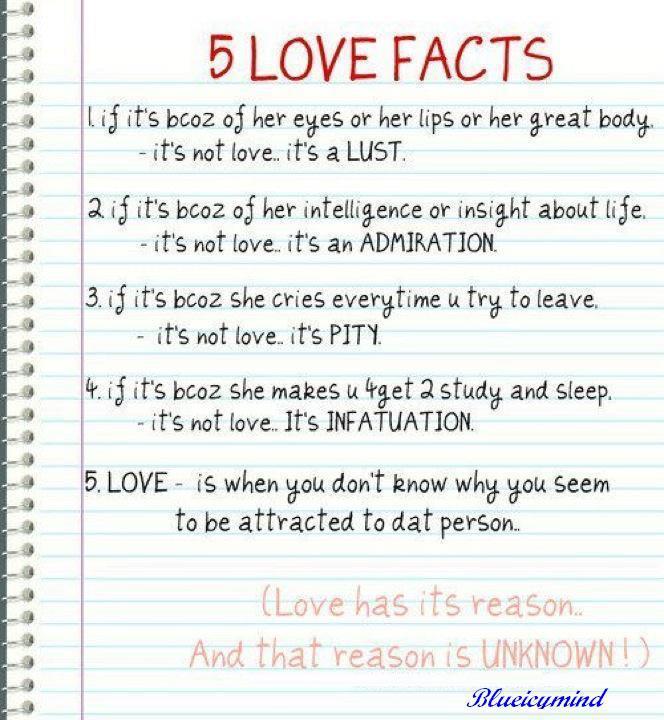 5 LOVE FACTS
1. if it's bcoz of her eyes or her lips or her great body.
- it's not love.. it's a LUST.
2. if it's bcoz of her intelligence or insight about life.
- it's not love.. it's an ADMIRATION.
3. if it's bcoz she cries everytime u try to leave.
- it's not love.. it's PITY.
4. if it's bcoz she makes u 4get 2 study and sleep.
- it's not love.. It's INFATUATION.
5. LOVE - is when you don't know why you seem
to be attracted to dat person..
(Love has its reason..
And that reason is UNKNOWN! )
Blueicymind